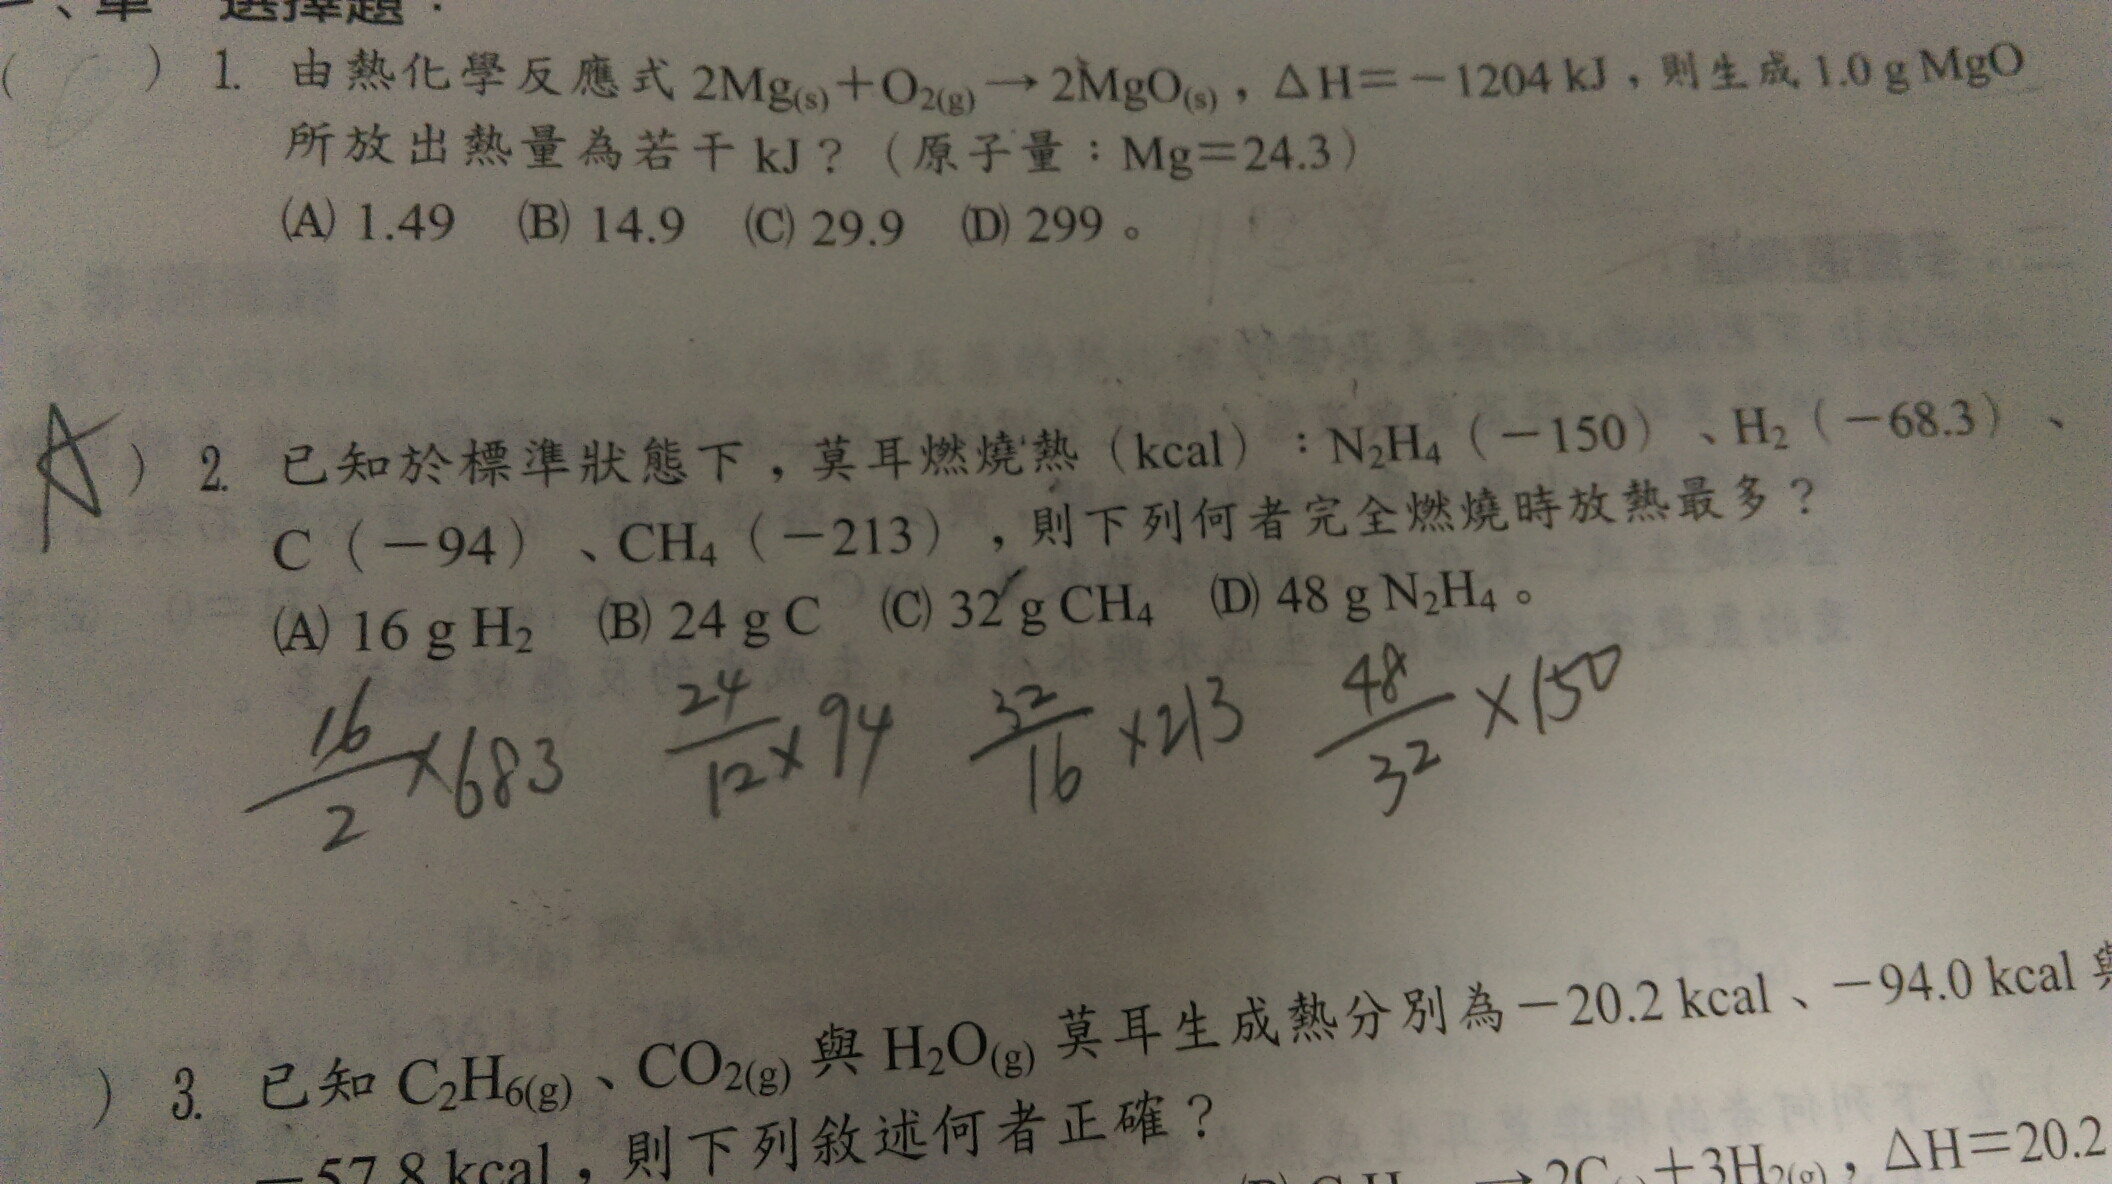 、單 選擇題：
( ) 1. 由熱化學反應式 2Mg(s)＋O2(g)→2MgO(s)，ΔH＝－1204 kJ，則生成 1.0 g MgO
所放出熱量為若干 kJ？（原子量：Mg＝24.3）
(A) 1.49 (B) 14.9 (C) 29.9 (D) 299。
A ) 2. 已知於標準狀態下，莫耳燃燒熱（kcal）：N2H4（－150）、H2（－68.3）、
C（－94）、CH4（－213），則下列何者完全燃燒時放熱最多？
(A) 16 g H2 (B) 24 g C (C) 32 g CH4 (D) 48 g N2H4。
16/2 ×683 24/12 ×94 32/16 ×213 48/32 ×150
) 3. 已知 C2H6(g)、CO2(g) 與 H2O(g) 莫耳生成熱分別為－20.2 kcal、－94.0 kcal 與
－57.8 kcal，則下列敘述何者正確？
＋3H2(g)，ΔH＝20.2